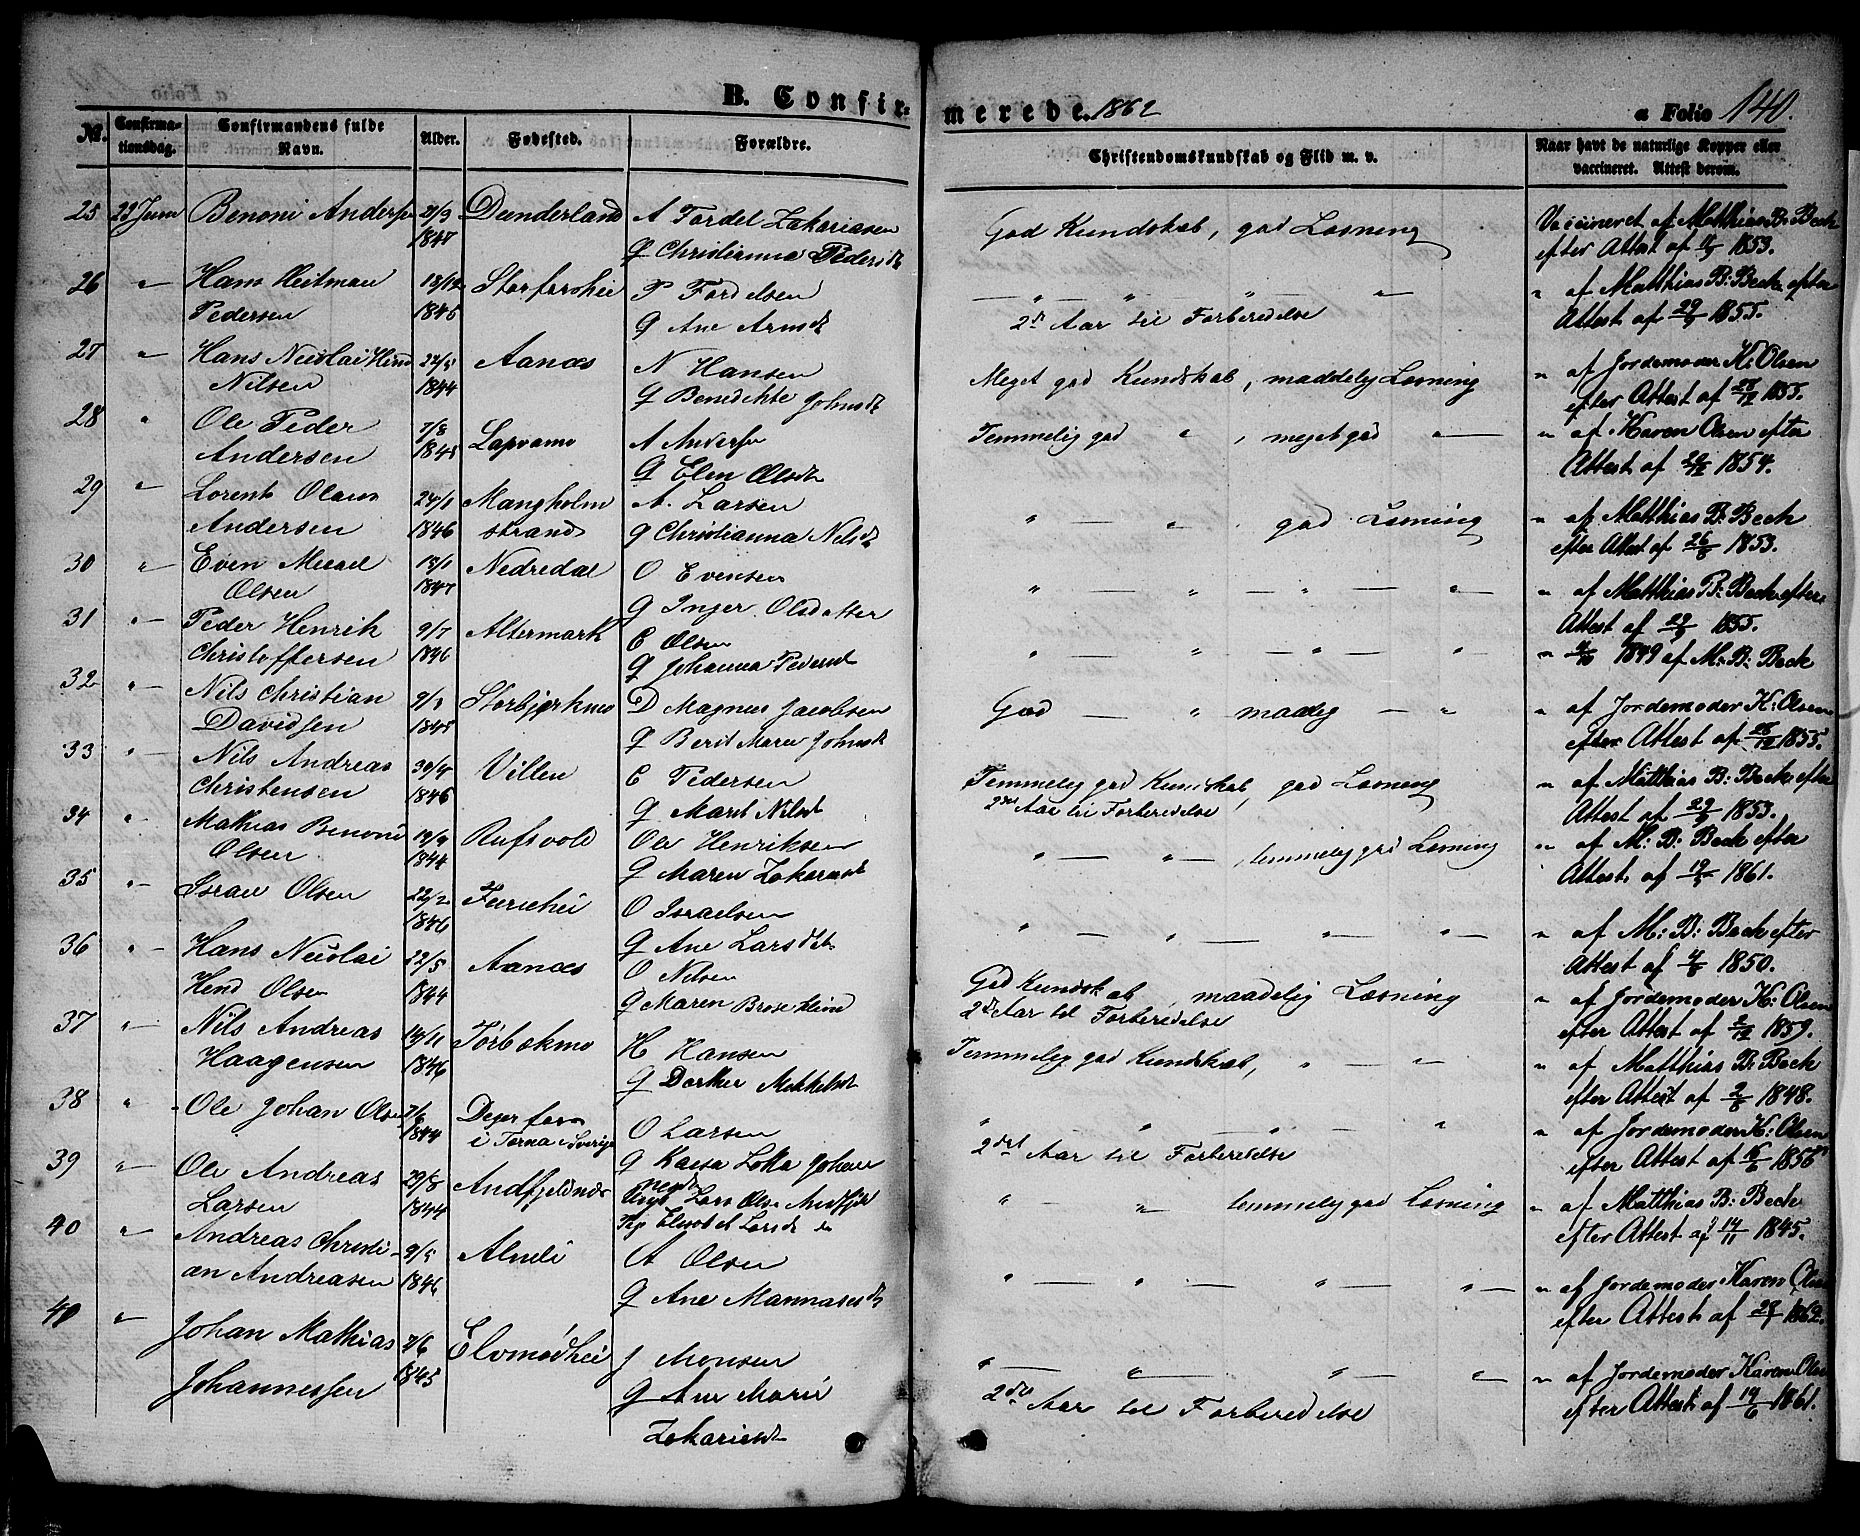 B. Confirmerede. 1862
a Folio 140.
No.
Confirmationsdag.
Confirmandens fulde Navn.
Alder.
Fødested.
Forældre.
Christendomskundskab og Flid m. v.
Naar havt de naturlige Kopper eller vaccineret. Attest derom.
25 23 Juni Benoni Andersen Dunderland A Fordel Zakariasen God Kundskab, god Læsning Vaccineret af Matthias B: Beck
1847 G Christianna Pedersdt efter Attest af 1853.
26 " Hans Heitman 13/12 Storforshei P Fordelsen — " " " " " af Matthias B: Beck efter
Pedersen 1845 G Ane Arnsdt 2det Aar til Forberedelse Attest af 29/9 1855.
27 " Hans Nicolai Hind 22/5 Aanæs N Hansen Meget god Kundskab, maadelig Læsning " af Jordemoder K: Olsen
Nilsen 1844 G Benedikte Johnsdt efter Attest af 28/12 1855.
28 " Ole Peder 7/8 Lapvamo A Andersen Temmelig god " , meget god " — " af Karen Olsen efter
Andersen 1845 G Elen Olsdt Attest af 1854.
29 " Lorents Olaus 24/1 Mangholm A. Larsen " — " , god Læsning " af Matthias B: Beck
Andersen 1846 strand G Christianna Nilsdt efter Attest af 26/8 1853.
30 " Even 13/1 Nedredal O Evensen " — " — " — " — " af Matthias B: Beck efter
Olsen 1847 G Inger Olsdatter Attest af 29/9 1855.
31 " Peder Henrik 9/7 Altermark C Olsen " — " — " — " " 1849 af M: B: Beck
Christoffersen 1846 G Johanna Pedersdt
32 " Nils Christian Storbjerkmo D Magnus Jacobsen God — " maadelig — " " af Jordemoder K: Olsen
Davidsen 1845 G Berit Maren Johnsdt efter Attest af 28/12 1855.
33 " Nils Andreas 30/4 Villen C Pedersen Temmelig god Kundskab, god Læsning " af Matthias B: Beck efter
Christensen 1846 G Marit Nilsdt 2det Aar til Forberedelse Attest af 29/9 1853.
34 " Mathias Benoni 19/9 Rufsvold Ole Henriksen " — " — , temmelig god Læsning " af M: B: Beck efter
Olsen 1844 G Maren Zakariasdt Attest af 1861.
35 " Israel Olsen 22/2 O Israelsen " — " — " — " — " " af M: B: Beck efter
1846 G Ane Larsdt Attest af 1850.
36 " Hans Nicolai 22/5 Aanæs O Nilsen God Kundskab, maadelig Læsning " af Jordemoder K: Olsen
Hind Olsen 1844 G Maren 2det Aar til Forberedelse efter Attest af 1859.
37 " Nils Andreas 14/11 Tørbækmo H Hansen Temmelig god Kundskab, " — " — " af Matthias B: Beck
Haagensen 1846 G Dorthea Mikkelsdt efter Attest af 2/8 1848.
38 " Ole Johan Olsen 7/6 O Larsen " " " " " " af Jordemoder K: Olsen
1844 i Tærna i Sverige G Kaesa Johannesdt 2det Aar til Forberedelse efter Attest af 1856
39 " Ole Andreas 29/8 Andfjeldnæs Lars Olsen Andfjeld " — " temmelig god Læsning " af Matthias B: Beck
Larsen 1844 Elisabet Larsdt efter Attest af 14/11 1845.
40 " Andreas Christi- 9/5 A Olsen " — " — " — " — " af Jordemoder Karen Olsen
an Andreasen 1846 G Ane Mannasesdt efter Attest af 1862.
41 " Johan Mathias 7/6 Elvmødhei J Monsen " — " — " — " — " af Jordemoder Karen Olsen
Johannessen 1845 G Ane Marie 2det Aar til Forberedelse efter Attest af 14/6 1861.
Zakariasdt